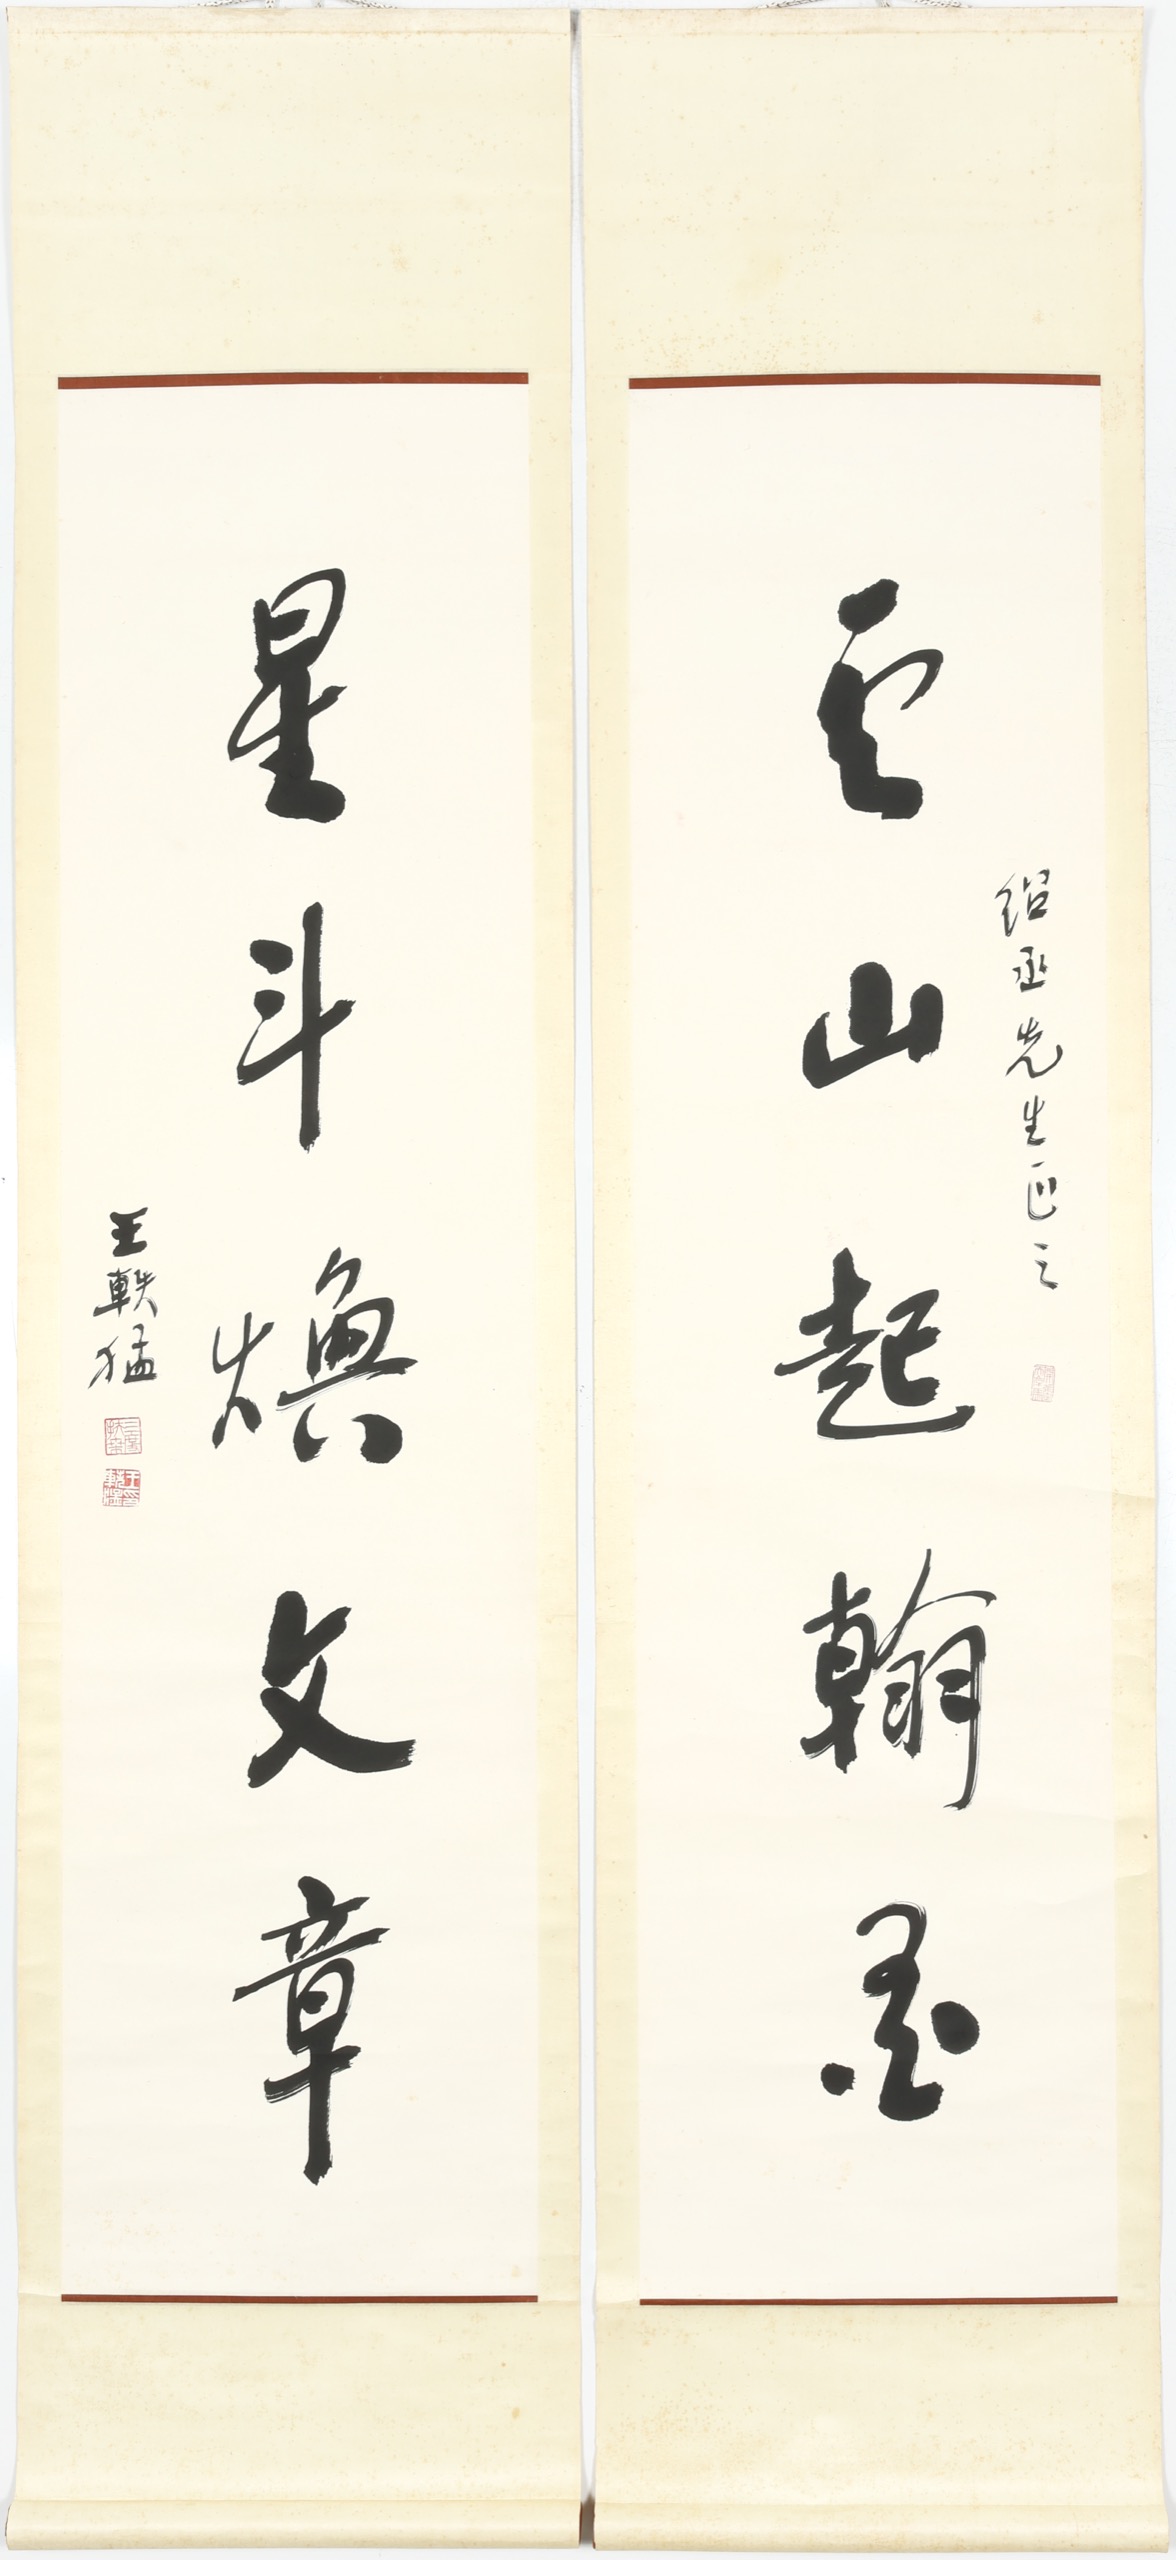 云山起翰墨
紹丞先生正之
星斗煥文章
王軼猛